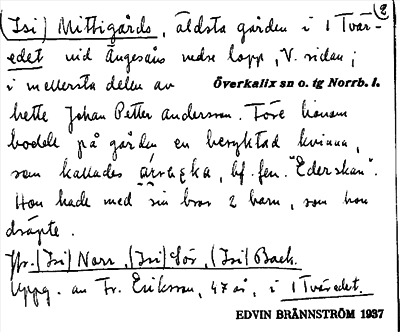 (Isi) Mittigårds, äldsta gården i 1 Tvär- 2
edet vid Ängesåns nedre lopp, V. sidan;
i mellersta delen av Överkalix sn o. tg Norrb. l.
hette Johan Petter Andersson. Före honom
bodde på gården en beryktad kvinna,
som kallades bf. fen. "Ederskan".
Hon hade med sin bror 2 barn, som hon
dräpte.
Jfr. (Isi) Norr, (Isi) Sör, (Isi) Back.
Uppg. av Fr. Eriksson, 47 år, i 1 Tväredet.
EDVIN BRÄNNSTRÖM 1937